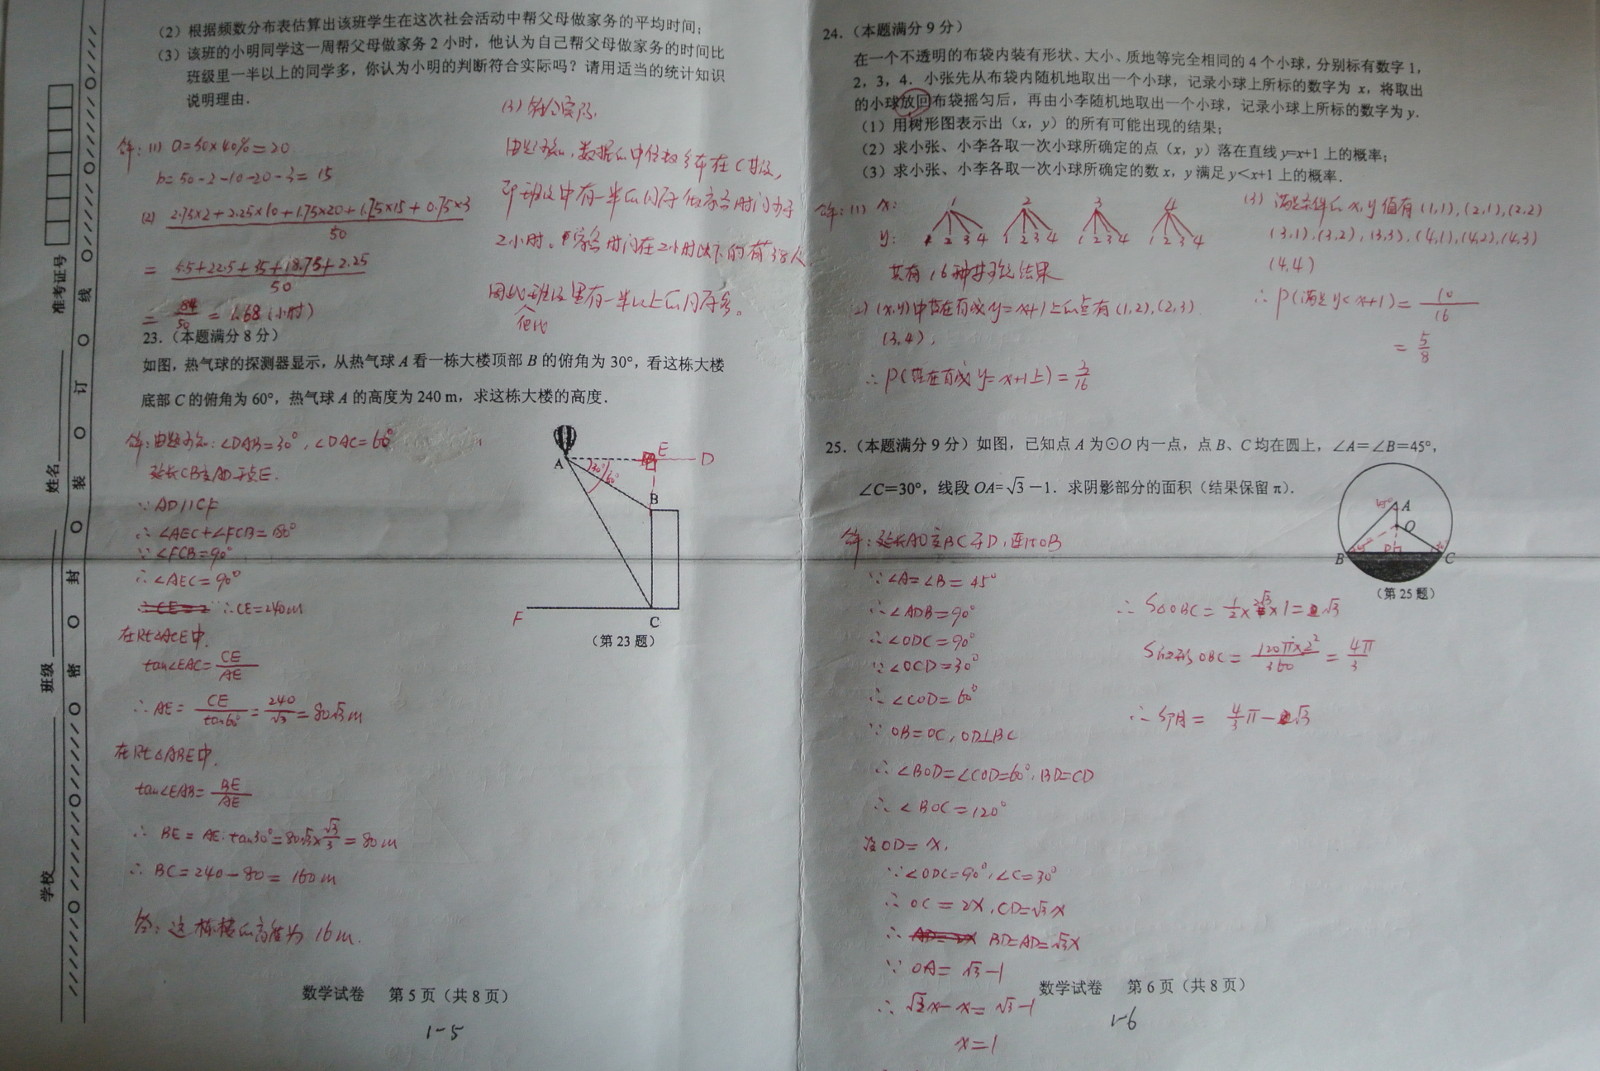 (2) 根据频数分布表估算出该班学生在这次社会活动中帮父母做家务的平均时间;
(3) 该班的小明同学这一周帮父母做家务 2 小时, 他认为自己帮父母做家务的时间比
班级里一半以上的同学多, 你认为小明的判断符合实际吗? 请用适当的统计知识
说明理由.
解: (1) a=50×40%=20
b=50-2-10-20-3=15
(2) 2.75×2+2.25×10+1.75×20+1.25×15+0.75×3 / 50
= 5.5+22.5+35+18.75+2.25 / 50
= 84/50 = 1.68 (小时)
(3) 符合实际.
2小时。
23. (本题满分 8 分)
如图, 热气球的探测器显示, 从热气球 A 看一栋大楼顶部 B 的俯角为 30°, 看这栋大楼
底部 C 的俯角为 60°, 热气球 A 的高度为 240 m, 求这栋大楼的高度.
解: 由题可知: ∠DAB=30°, ∠DAC=60°
延长CB交AD于点E.
∵ AD∥CF
∴ ∠AEC+∠FCB=180°
∵ ∠FCB=90°
∴ ∠AEC=90°
∴ CE=240m
在Rt△ACE中.
tan∠EAC= CE/AE
∴ AE= CE/tan60° = 240/√3 = 80√3 m
在Rt△ABE中.
tan∠EAB= BE/AE
∴ BE = AE·tan30°=80√3×√3/3 = 80m
∴ BC=240-80=160m
答: 这栋楼的高度为 16m.
A
30°
60°
E
D
B
F
C
(第 23 题)
数学试卷 第 5 页 (共 8 页)
1-5
准考证号
姓名
班级
学校
线
订
装
封
密
24. (本题满分 9 分)
在一个不透明的布袋内装有形状、大小、质地等完全相同的 4 个小球, 分别标有数字 1,
2, 3, 4. 小张先从布袋内随机地取出一个小球, 记录小球上所标的数字为 x, 将取出
的小球放回布袋摇匀后, 再由小李随机地取出一个小球, 记录小球上所标的数字为 y.
(1) 用树形图表示出 (x, y) 的所有可能出现的结果;
(2) 求小张、小李各取一次小球所确定的点 (x, y) 落在直线 y=x+1 上的概率;
(3) 求小张、小李各取一次小球所确定的数 x, y 满足 y<x+1 上的概率.
解: (1) x: 1 2 3 4
y: 1 2 3 4 1 2 3 4 1 2 3 4 1 2 3 4
共有16种其可能结果
2) (x,y)中落在直线y=x+1上的点有(1,2),(2,3)
(3,4),
∴ P(落在直线y=x+1上)= 3/16
(3) 满足条件的x,y值有(1,1),(2,1),(2,2)
(3,1),(3,2),(3,3),(4,1),(4,2),(4,3)
(4,4)
∴ P(满足y<x+1)= 10/16
= 5/8
25. (本题满分 9 分) 如图, 已知点 A 为⊙O 内一点, 点 B、C 均在圆上, ∠A=∠B=45°,
∠C=30°, 线段 OA=√3-1. 求阴影部分的面积 (结果保留 π).
A
O
B
D
C
(第 25 题)
解: 延长AO交BC于D, 连接OB
∵ ∠A=∠B=45°
∴ ∠ADB=90°
∴ ∠ODC=90°
∵ ∠OCD=30°
∴ ∠COD=60°
∵ OB=OC, OD⊥BC
∴ ∠BOD=∠COD=60°, BD=CD
∴ ∠BOC=120°
设OD=x,
∵ ∠ODC=90°, ∠C=30°
∴ OC=2x, CD=√3x
∴ BD=AD=√3x
∵ OA=√3-1
∴ √3x-x=√3-1
x=1
∴ S△OBC= 1/2×2√3×1=√3
S扇形OBC= 120π×2²/360 = 4π/3
∴ S阴= 4/3π-√3
数学试卷 第 6 页 (共 8 页)
1-6